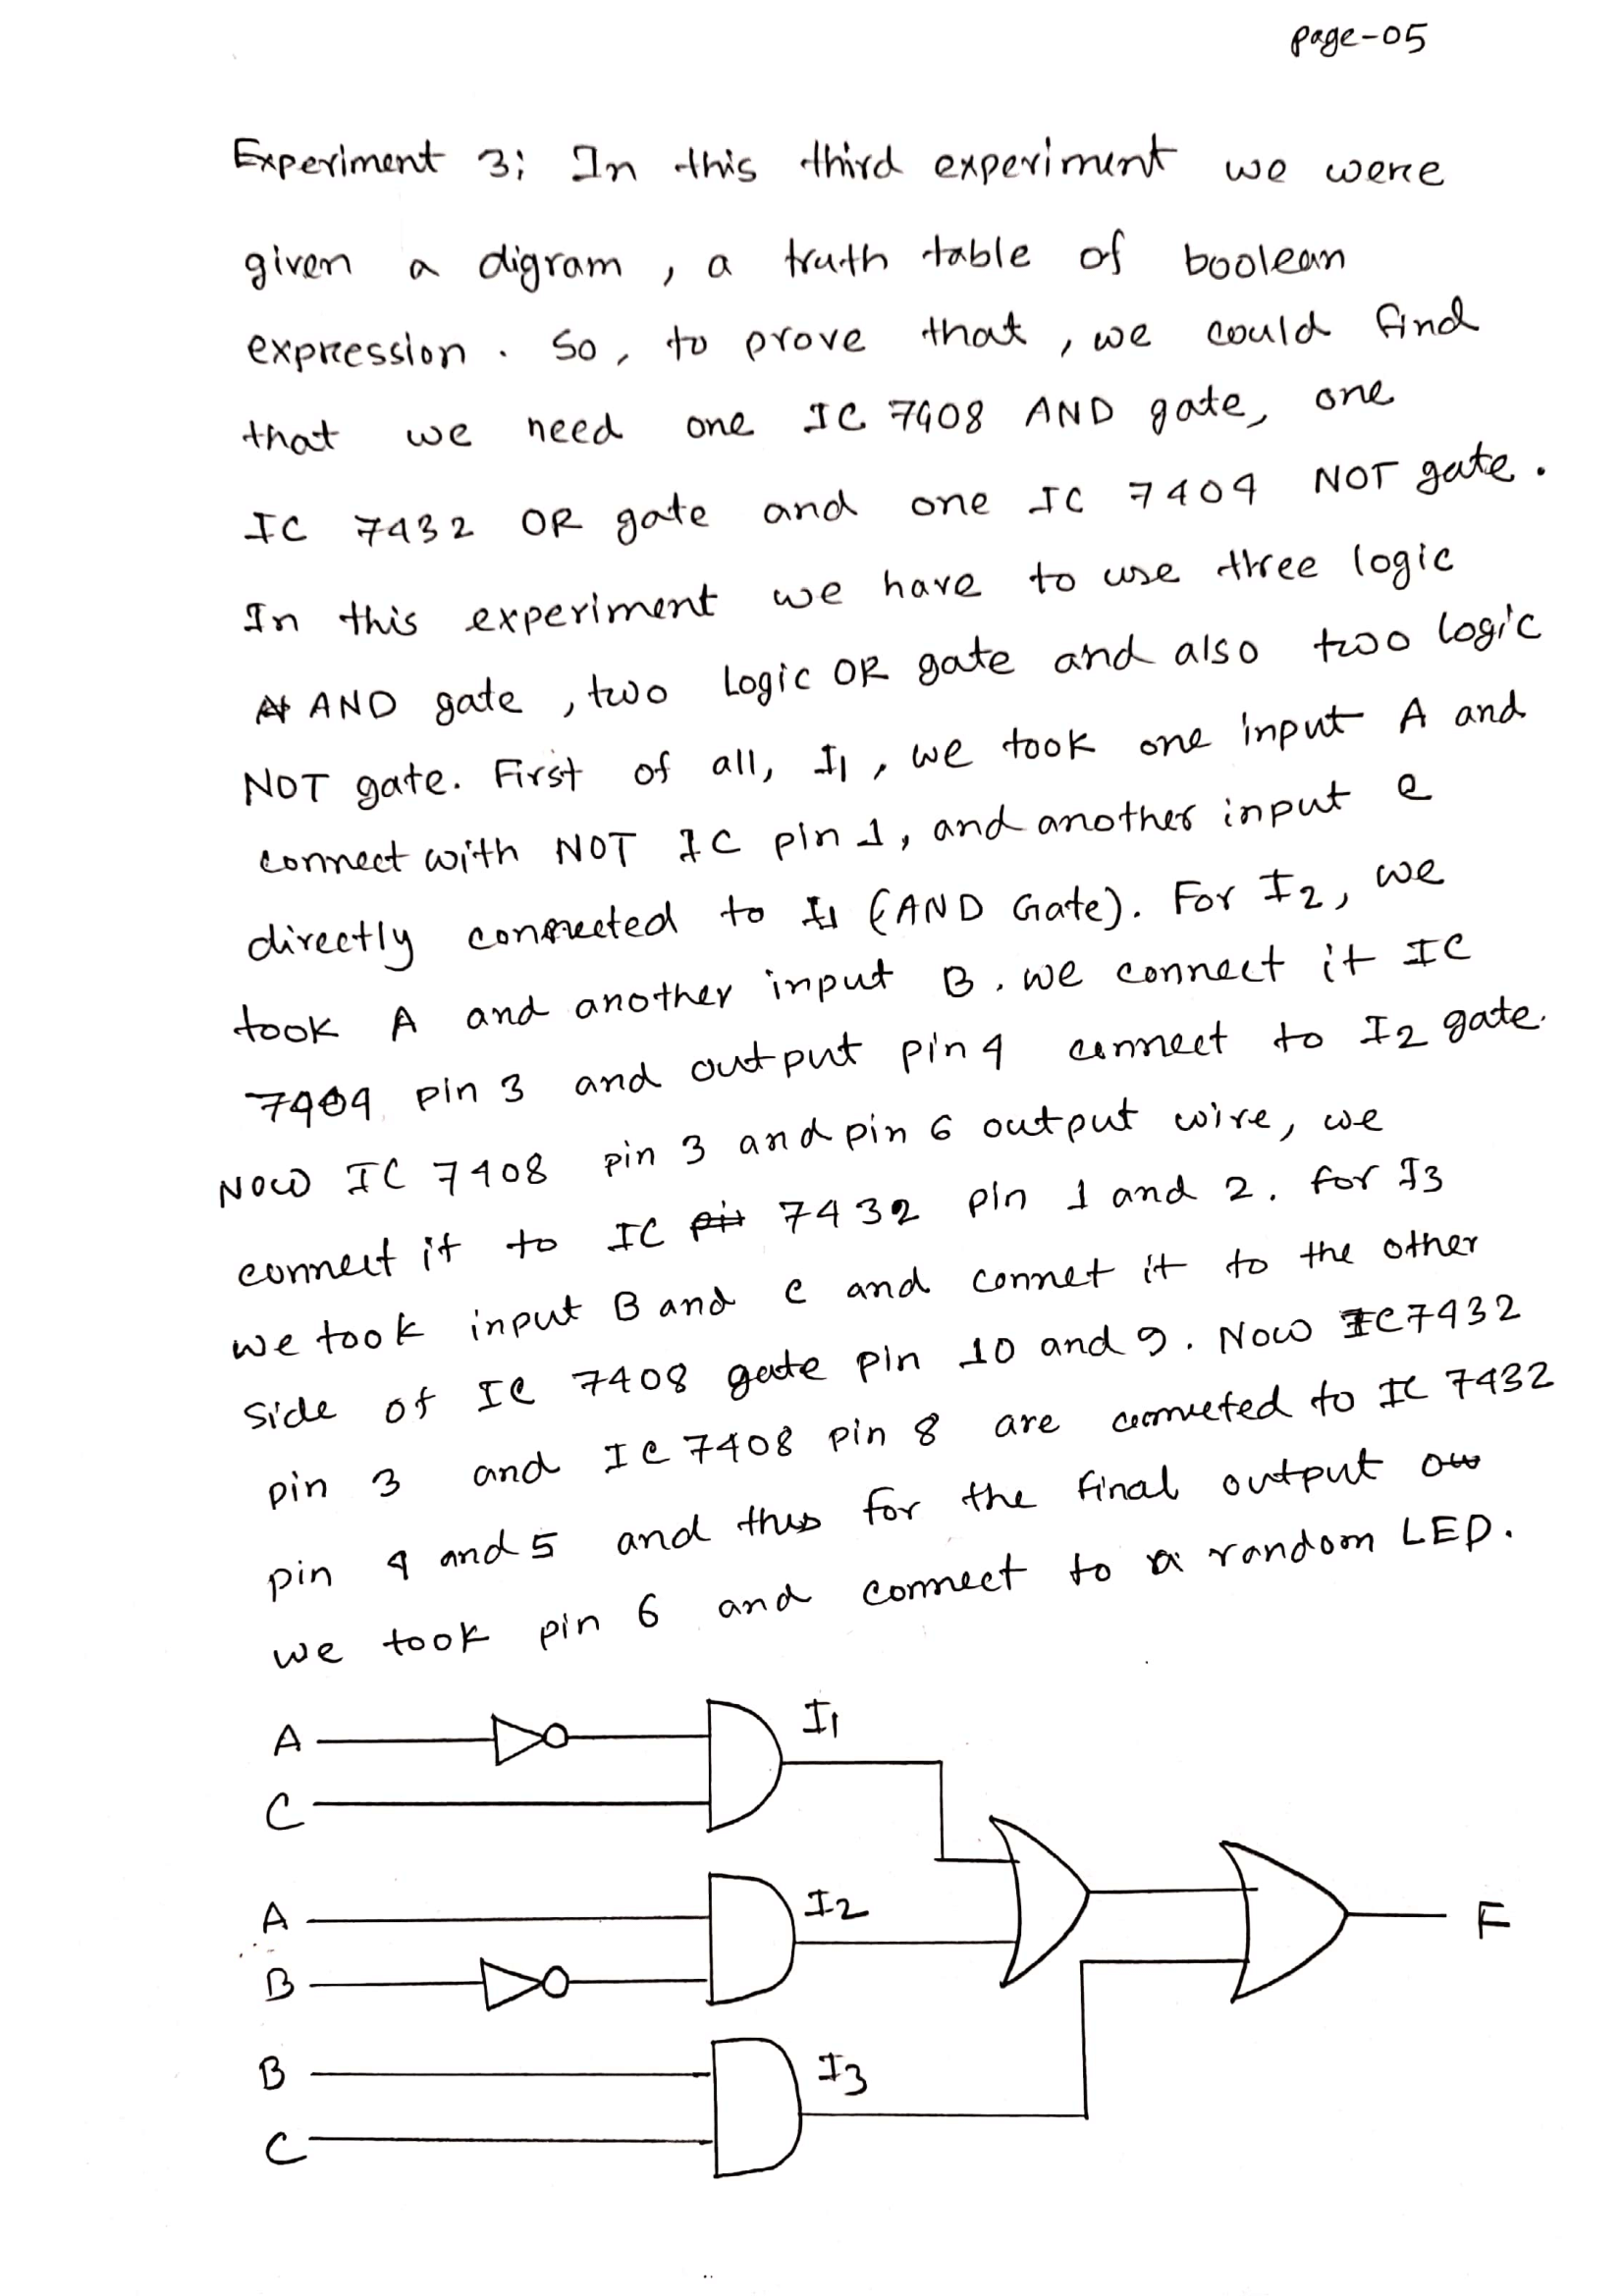 page-05
Experiment 3: In this third experiment we were
given a digram, a truth table of boolean
expression. So, to prove that, we could find
that we need one IC 7408 AND gate, one
IC 7432 OR gate and one IC 7404 NOT gate.
In this experiment we have to use three logic
AND gate, two Logic OR gate and also two logic
NOT gate. First of all, I1, we took one input A and
connect with NOT IC pin 1, and another input C
directly connected to I1 (AND Gate). For I2, we
took A and another input B. we connect it IC
7404 pin 3 and output pin 4 connect to I2 gate.
Now IC 7408 pin 3 and pin 6 output wire, we
connect it to IC 7432 pin 1 and 2. for I3
we took input B and C and connet it to the other
side of IC 7408 gate pin 10 and 9. Now IC7432
pin 3 and IC 7408 pin 8 are conneted to IC 7432
pin 4 and 5 and thus for the final output
we took pin 6 and connect to a random LED.
A
I1
C
A
I2
F
B
B
I3
C